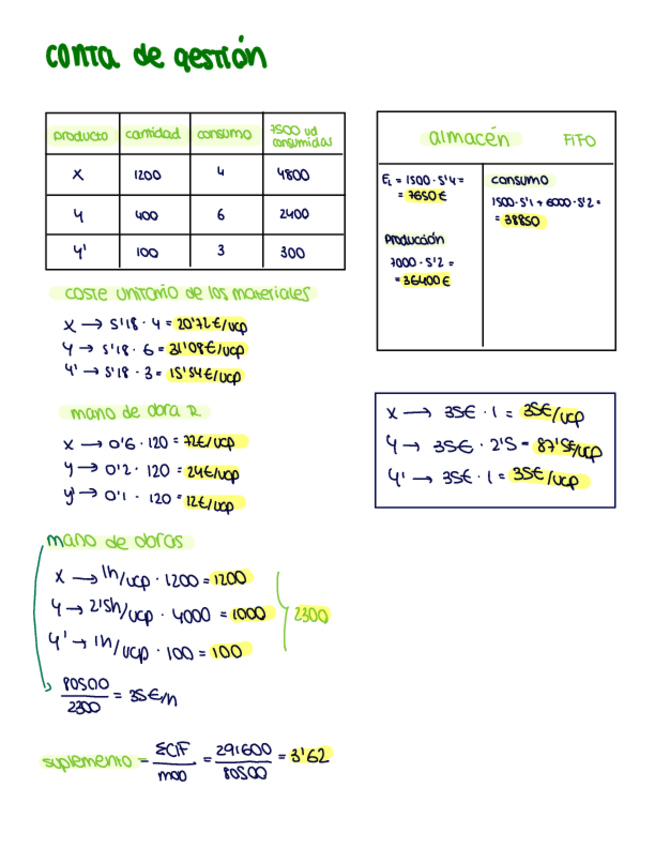 conta de gestión
producto cantidad consumo 7500 ud consumidas
X 1200 4 4800
Y 400 6 2400
Y' 100 3 300
almacén FIFO
EI = 1500 · 5'4 =
= 7650€
Producción
7000 · 5'2 =
= 36400€
consumo
1500 · 5'1 + 6000 · 5'2 =
= 38850
coste unitario de los materiales
X → 5'18 · 4 = 20'72€/ucp
Y → 5'18 · 6 = 31'08€/ucp
Y' → 5'18 · 3 = 15'54€/ucp
mano de obra D.
X → 0'6 · 120 = 72€/ucp
Y → 0'2 · 120 = 24€/ucp
Y' → 0'1 · 120 = 12€/ucp
X → 35€ · 1 = 35€/ucp
Y → 35€ · 2'5 = 87'5€/ucp
Y' → 35€ · 1 = 35€/ucp
mano de obras
X → 1h/ucp · 1200 = 1200
Y → 2'5h/ucp · 4000 = 1000
Y' → 1h/ucp · 100 = 100
2300
80500/2300 = 35€/h
suplemento = ΣCIF/MOD = 291600/80500 = 3'62